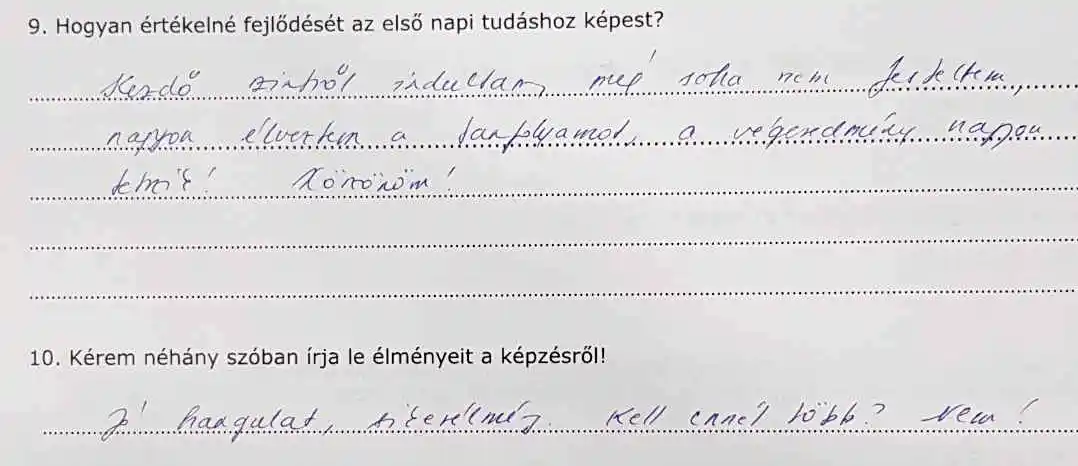 9. Hogyan értékelné fejlődését az első napi tudáshoz képest?
Kezdő szintről indultam, még soha nem festettem,
nagyon élveztem a tanfolyamot, a végeredmény nagyon
tetszik! Köszönöm!
10. Kérem néhány szóban írja le élményeit a képzésről!
Jó hangulat, sikerélmény. Kell ennél több? Nem!